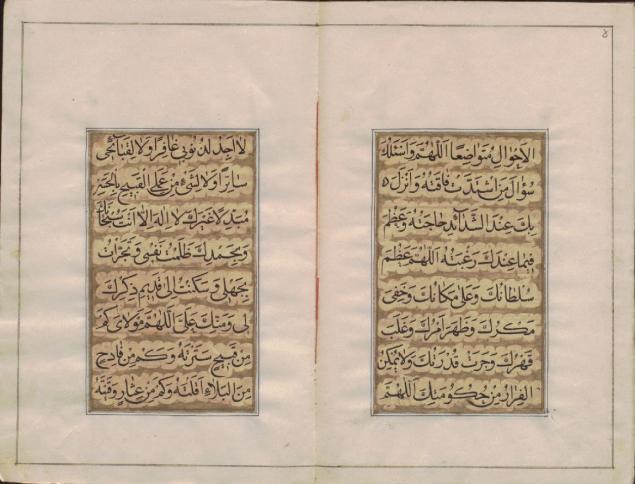 ٤
الاحوال متواضعا اللهم واسئلك
سؤال من اشتدت فاقته وانزل
بك عند الشدائد حاجته وعظم
فيما عندك رغبته اللهم عظم
سلطانك وعلى مكانك وخفى
مكرك وظهر امرك وغلب
قهرك وجرت قدرتك ولا يمكن
الفرار من حكومتك اللهم
لا اجد لذنوبى غافرا ولا لقبائحى
ساترا ولا لشئ من عملى القبيح بالحسن
مبدلا غيرك لا اله الا انت سبحانك
وبحمدك ظلمت نفسى وتجرات
بجهلى وسكنت الى قديم ذكرك
لى ومنك على اللهم مولاى كم
من قبيح سترته وكم من فادح
من البلاء اقلته وكم من عثار وقيته